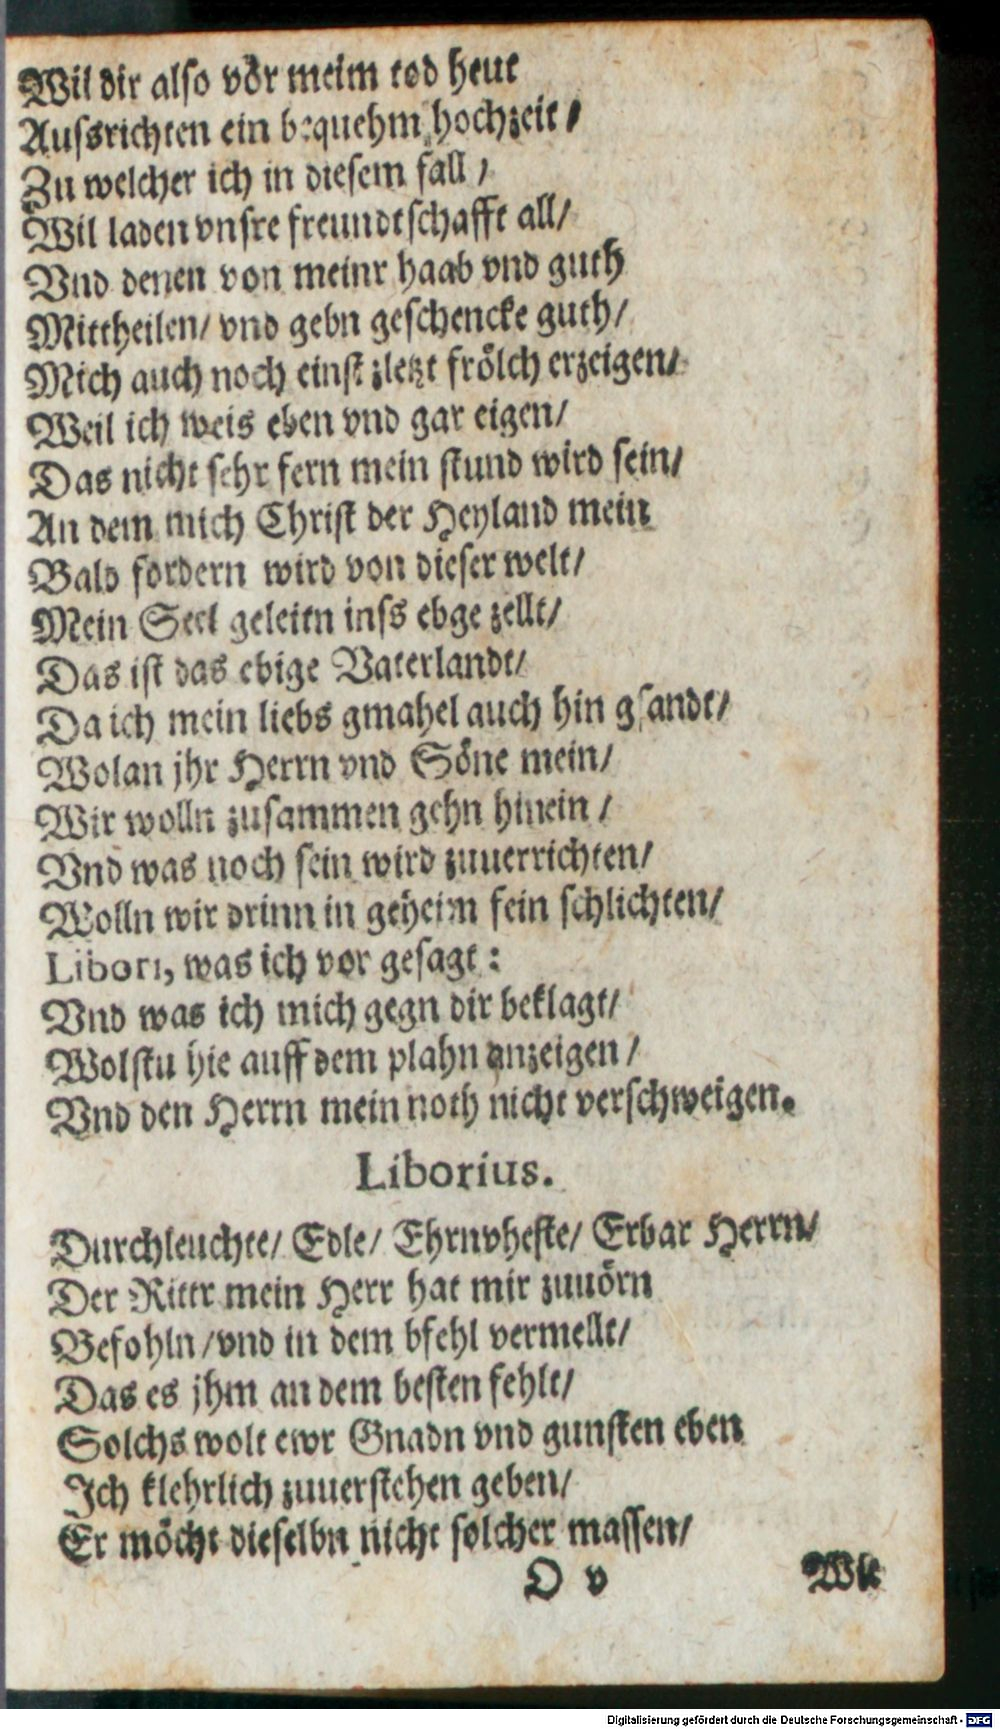 Wil dir also vör meim tod heut
Aussrichten ein bequehm hochzeit/
Zu welcher ich in diesem fall/
Wil laden vnsre freundtschafft all/
Vnd denen von meinr haab vnd guth
Mittheilen/ vnd gebn geschencke guth/
Mich auch noch einst zletzt frölch erzeigen/
Weil ich weis eben vnd gar eigen/
Das nicht sehr fern mein stund wird sein/
An dem mich Christ der Heyland mein
Bald fordern wird von dieser welt/
Mein Seel geleitn inss ebge zellt/
Das ist das ebige Vaterlandt/
Da ich mein liebs gmahel auch hin gsandt/
Wolan jhr Herrn vnd Söne mein/
Wir wolln zusammen gehn hinein/
Vnd was noch sein wird zuuerrichten/
Wolln wir drinn in geheim fein schlichten/
Libori, was ich vor gesagt:
Vnd was ich mich gegn dir beklagt/
Wolstu hie auff dem plahn anzeigen/
Vnd den Herrn mein noth nicht verschweigen.
Liborius.
Durchleuchte/ Edle/ Ehrnvheste/ Erbar Herrn/
Der Rittr mein Herr hat mir zuuörn
Befohln/ vnd in dem bfehl vermellt/
Das es jhm an dem besten fehlt/
Solchs wolt ewr Gnadn vnd gunsten eben
Ich klehrlich zuuerstehen geben/
Er möcht dieselbn nicht solcher massen/
O v
Digitalisierung gefördert durch die Deutsche Forschungsgemeinschaft - DFG